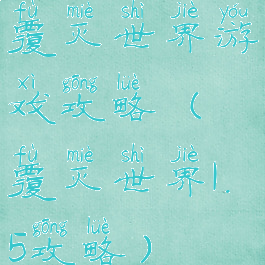 fù miè shì jiè yóu
覆灭世界游
xì gōng lüè
戏攻略(
fù miè shì jiè
覆灭世界1.
gōng lüè
5攻略)